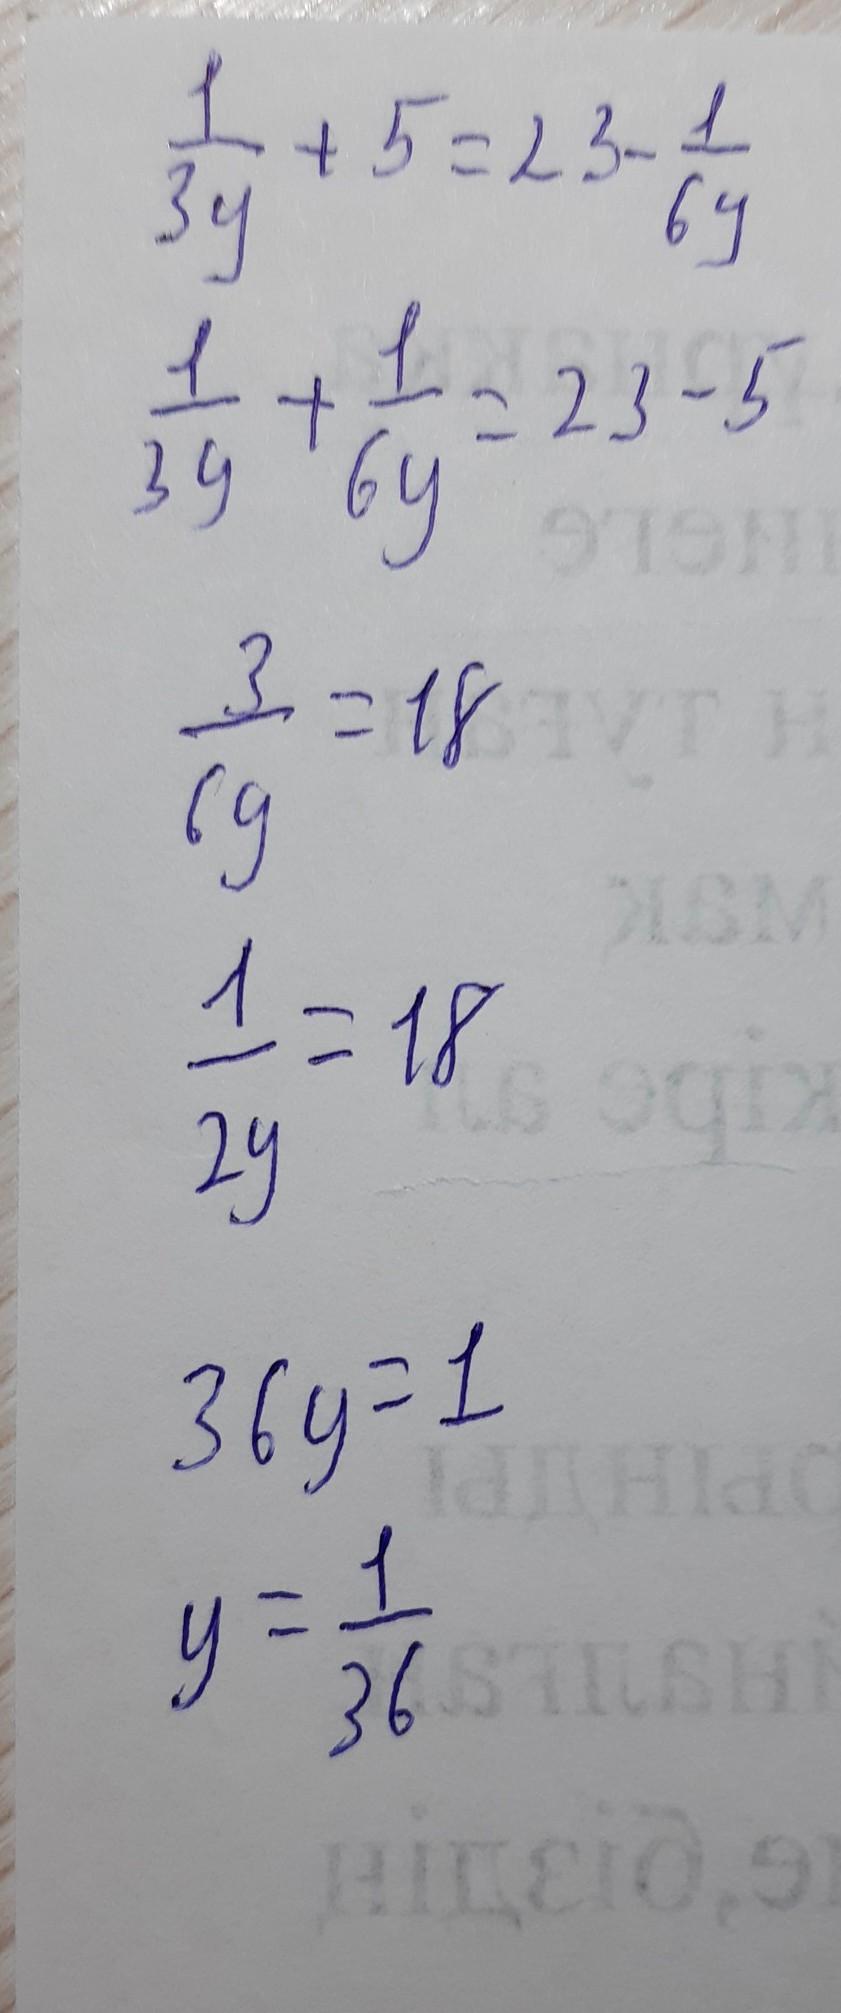 1/3y + 5 = 23 - 1/6y
1/3y + 1/6y = 23 - 5
3/6y = 18
1/2y = 18
36y = 1
y = 1/36